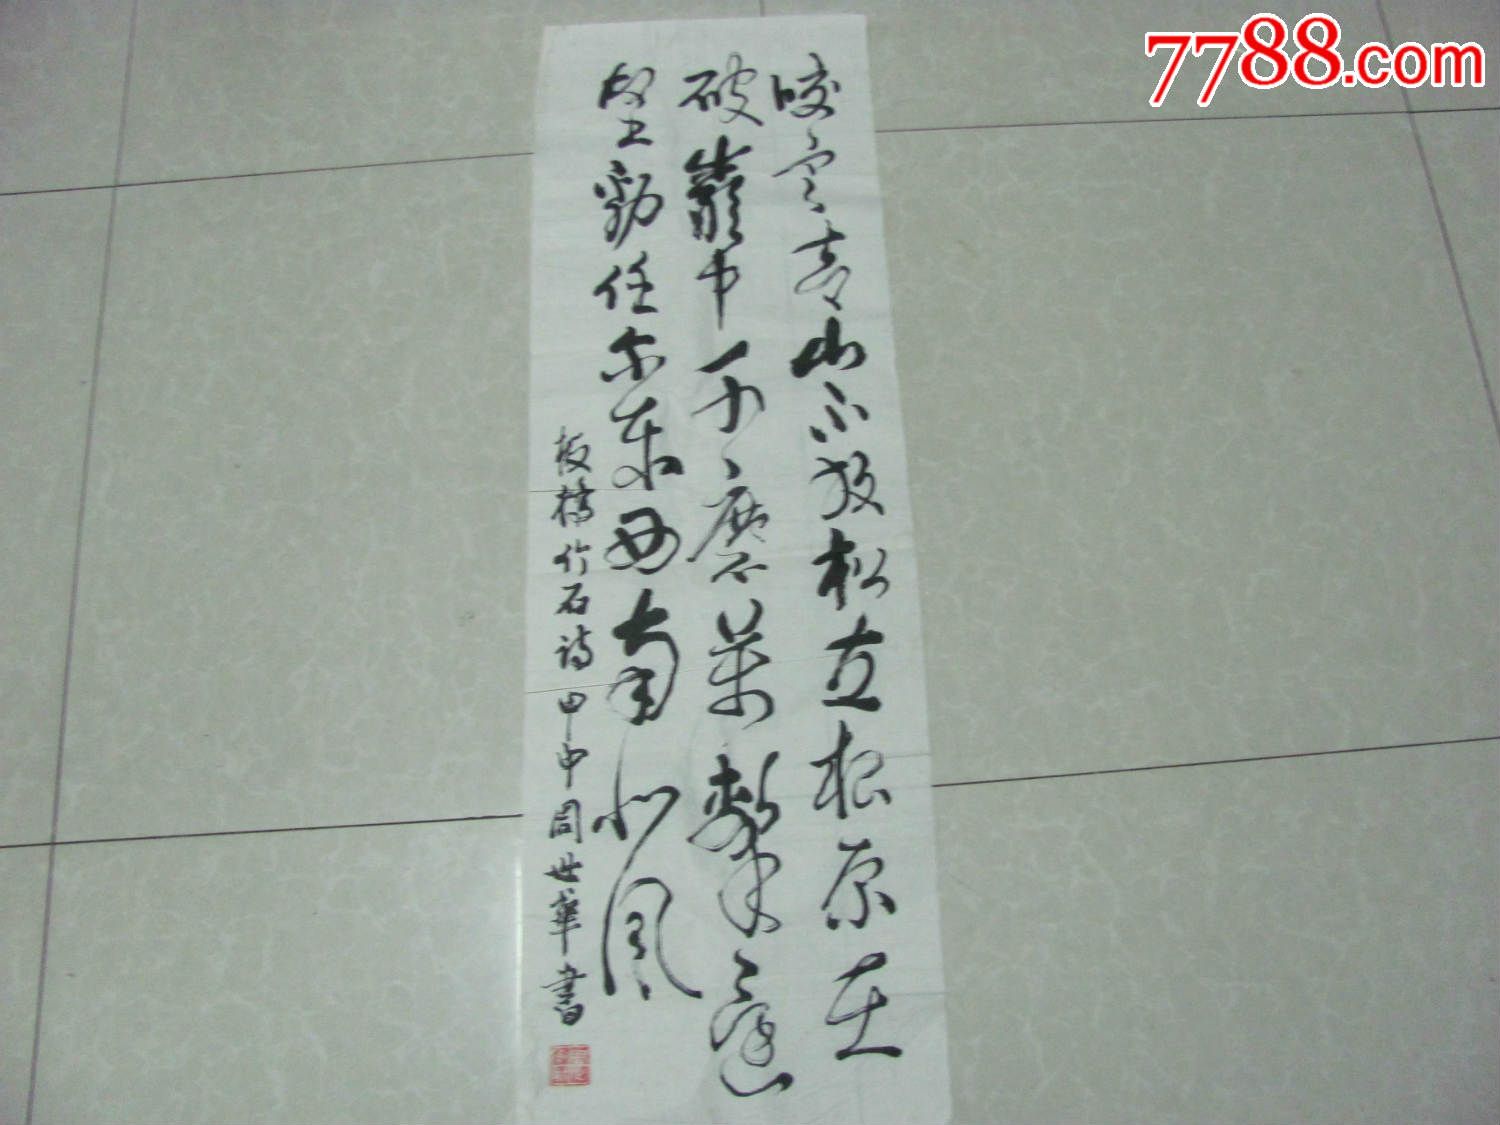 咬定青山不放松立根原在
破岩中千磨万击还
坚劲任尔东西南北风
板桥竹石诗甲申周世华书
7788.com